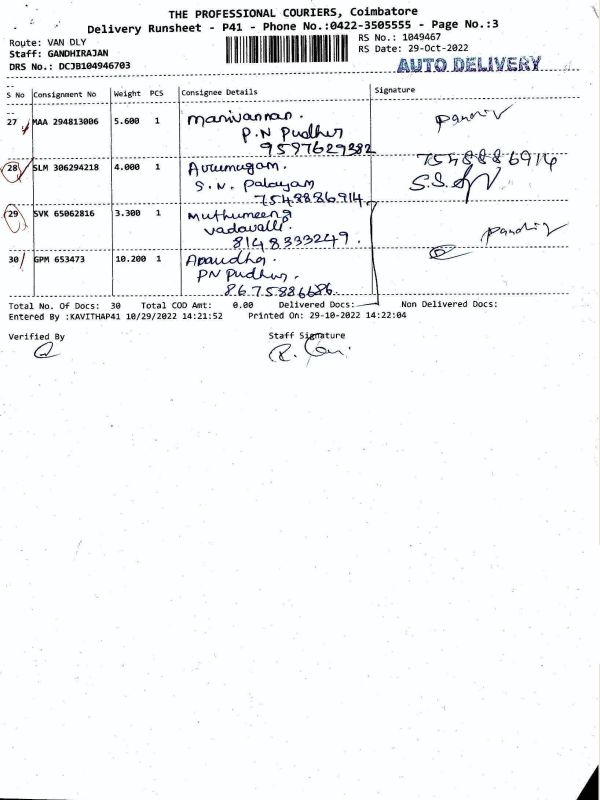 THE PROFESSIONAL COURIERS, Coimbatore
Delivery Runsheet - P41 - Phone No.:0422-3505555 - Page No.:3
Route: VAN DLY
Staff: GANDHIRAJAN
DRS No.: DCJB104946703
RS No.: 1049467
RS Date: 29-Oct-2022
AUTO DELIVERY
S No Consignment No Weight PCS Consignee Details Signature
27 MAA 294813006 5.600 1 Manivannan.
P.N Pudhur
9597629382
28 SLM 306294218 4.000 1 Arumugam. 7548886914
S.N. Palayam
7548886914
29 SVK 65062816 3.300 1 Muthumeena
Vadavalli.
8148333249.
30 GPM 653473 10.200 1
PN Pudhur.
8675886686.
Total No. Of Docs: 30 Total COD Amt: 0.00 Delivered Docs: Non Delivered Docs:
Entered By :KAVITHAP41 10/29/2022 14:21:52 Printed On: 29-10-2022 14:22:04
Verified By Staff Signature